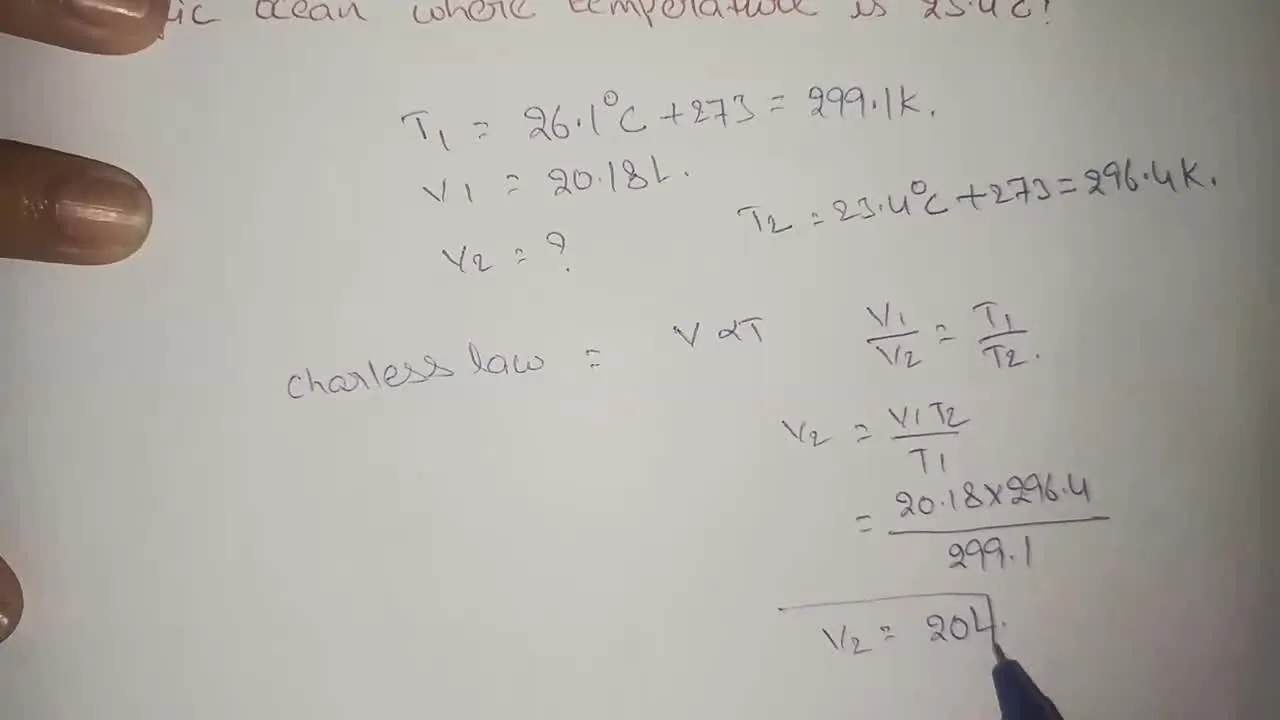 ic ocean where temperature is 23.4°C?
T1 = 26.1°C + 273 = 299.1K.
V1 = 20.18L.
T2 = 23.4°C + 273 = 296.4K.
V2 = ?
charless law = V ∝ T V1/V2 = T1/T2.
V2 = V1 T2/T1
= 20.18 x 296.4/299.1
V2 = 20L.